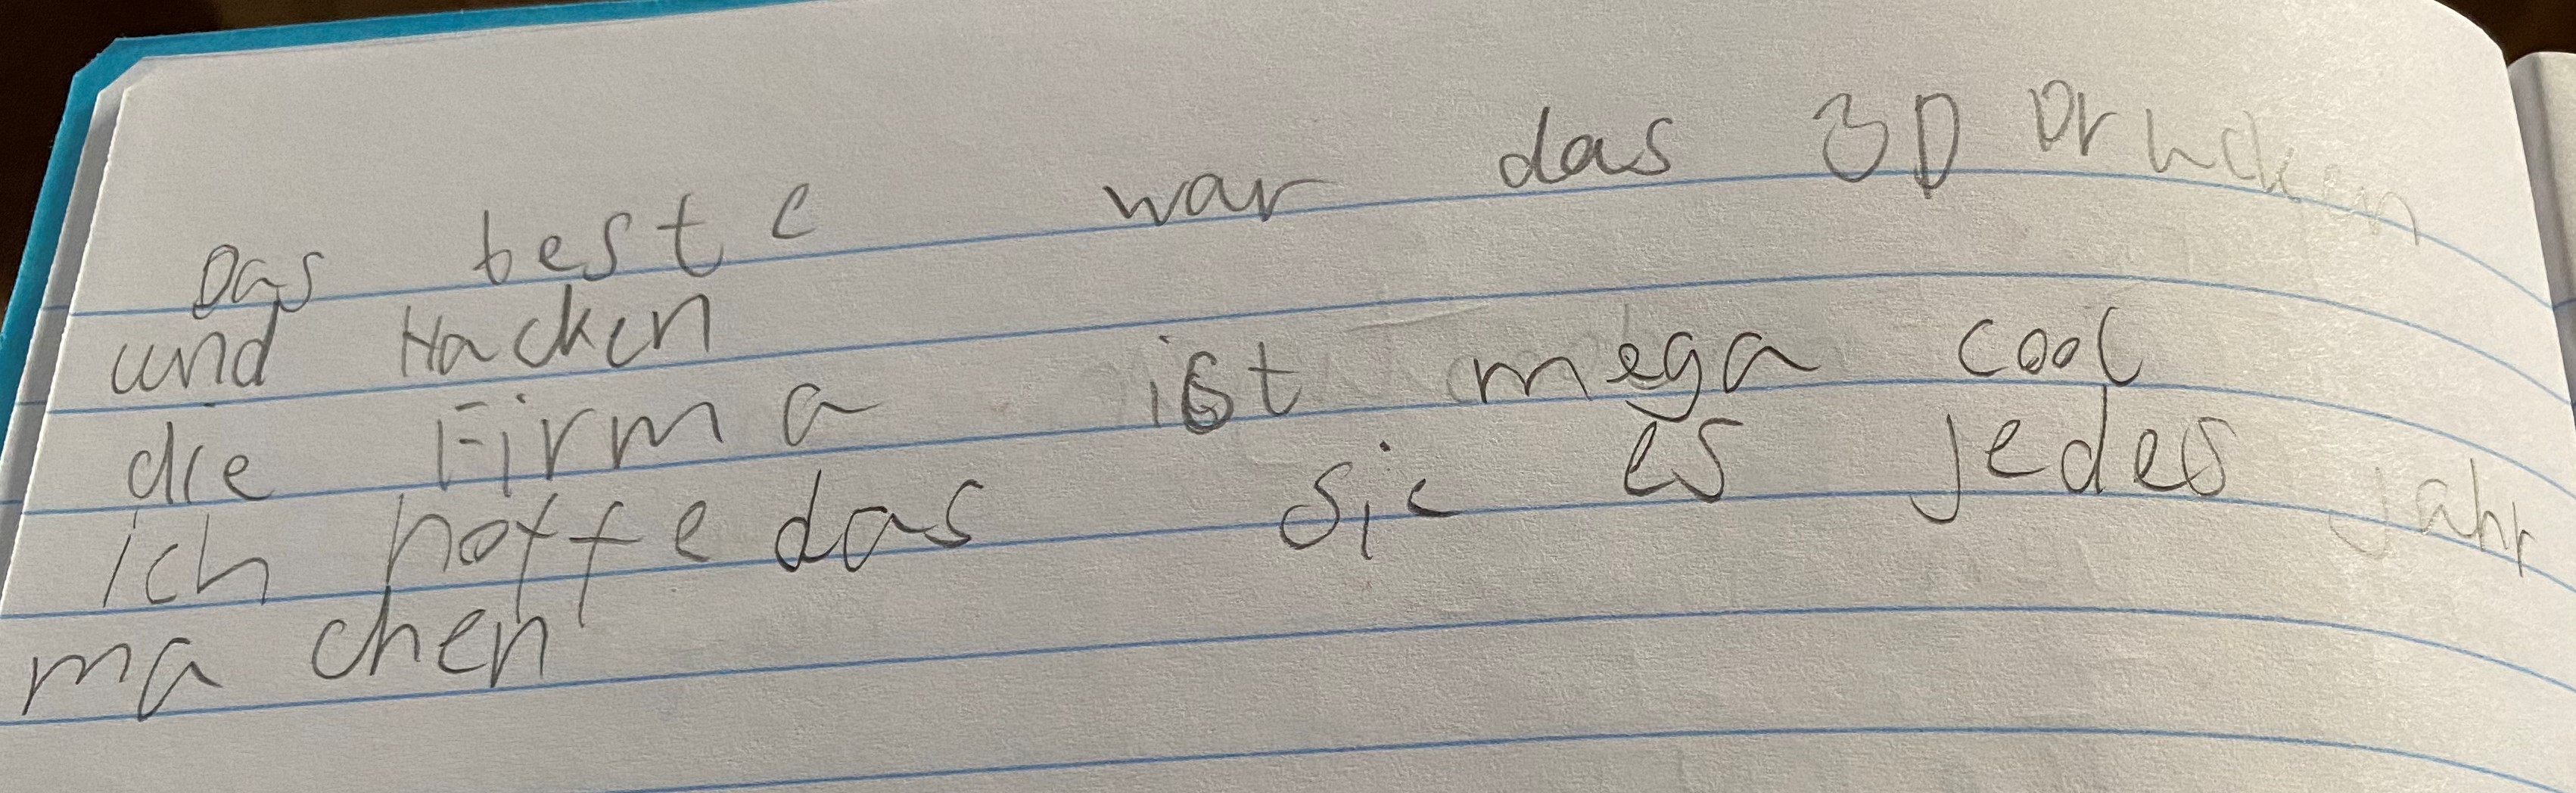 Das beste war das 3D Drucken
und Hacken
die Firma ist mega cool
ich hoffe das sie es jedes Jahr
machen